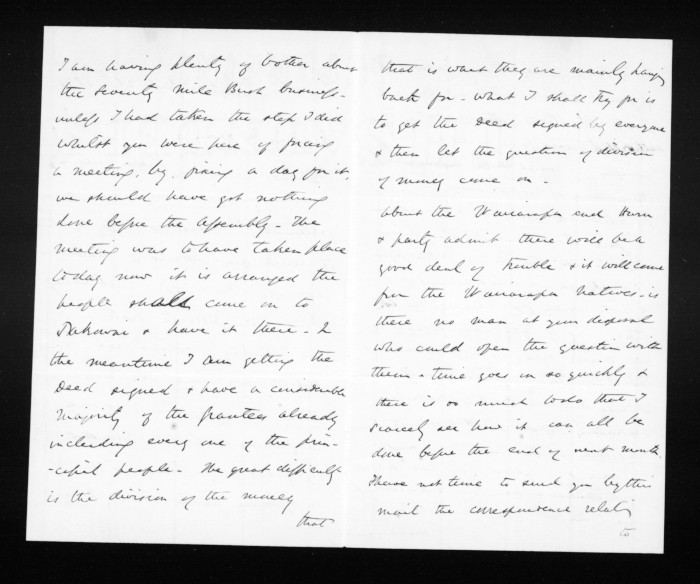 I am having plenty of bother about
the Seventy Mile Bush business -
unless I had taken the step I did
whilst you were here of forcing
a meeting, by fixing a day for it,
we should have got nothing
done before the Assembly - The
meeting was to have taken place
today now it is arranged the
people shall come on to
& have it there - In
the meantime I am getting the
Deed signed & have a considerable
majority of the grantees already
including every one of the prin-
-cipal people - The great difficulty
is the division of the money
that
that is what they are mainly hanging
back for - What I shall try for is
to get the Deed signed by everyone
& then let the question of division
of money come on -
About the Wairarapa end
& party admit there will be a
good deal of trouble & it will come
from the Wairarapa Natives - is
there no man at your disposal
who could open the question with
them - time goes on so quickly &
there is so much to do that I
scarcely see how it can all be
done before the end of next month
I have not time to send you by this
mail the correspondence relating
to